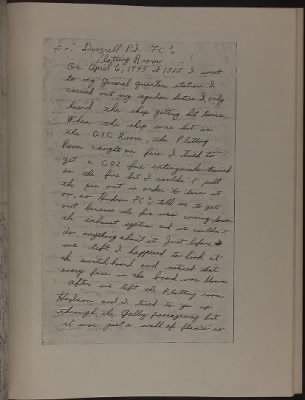 Dunnell P.J. FC 3c
Plotting Room
On April 6, 1945 at 1525 I went
to my General quarters station I
carried out my regular duties I only
heard the ship getting hit twice
When the ship was hit in
the C.I.C Room, the Plotting
Room caught on fire I tried to
get a CO2 fire extinguisher trained
on the fire but I couldn't pull
the pin out in order to turn it
on, so Hudson FC 2c told us to get
out because the fire was coming down
the exhaust system and we couldn't
do anything about it. Just before
we left I happened to look at
the switchboard and noticed that
every fuse in the board was blown
After we left the Plotting room
Hudson and I tried to go up
through the Galley passageway but
it was just a wall of flames so